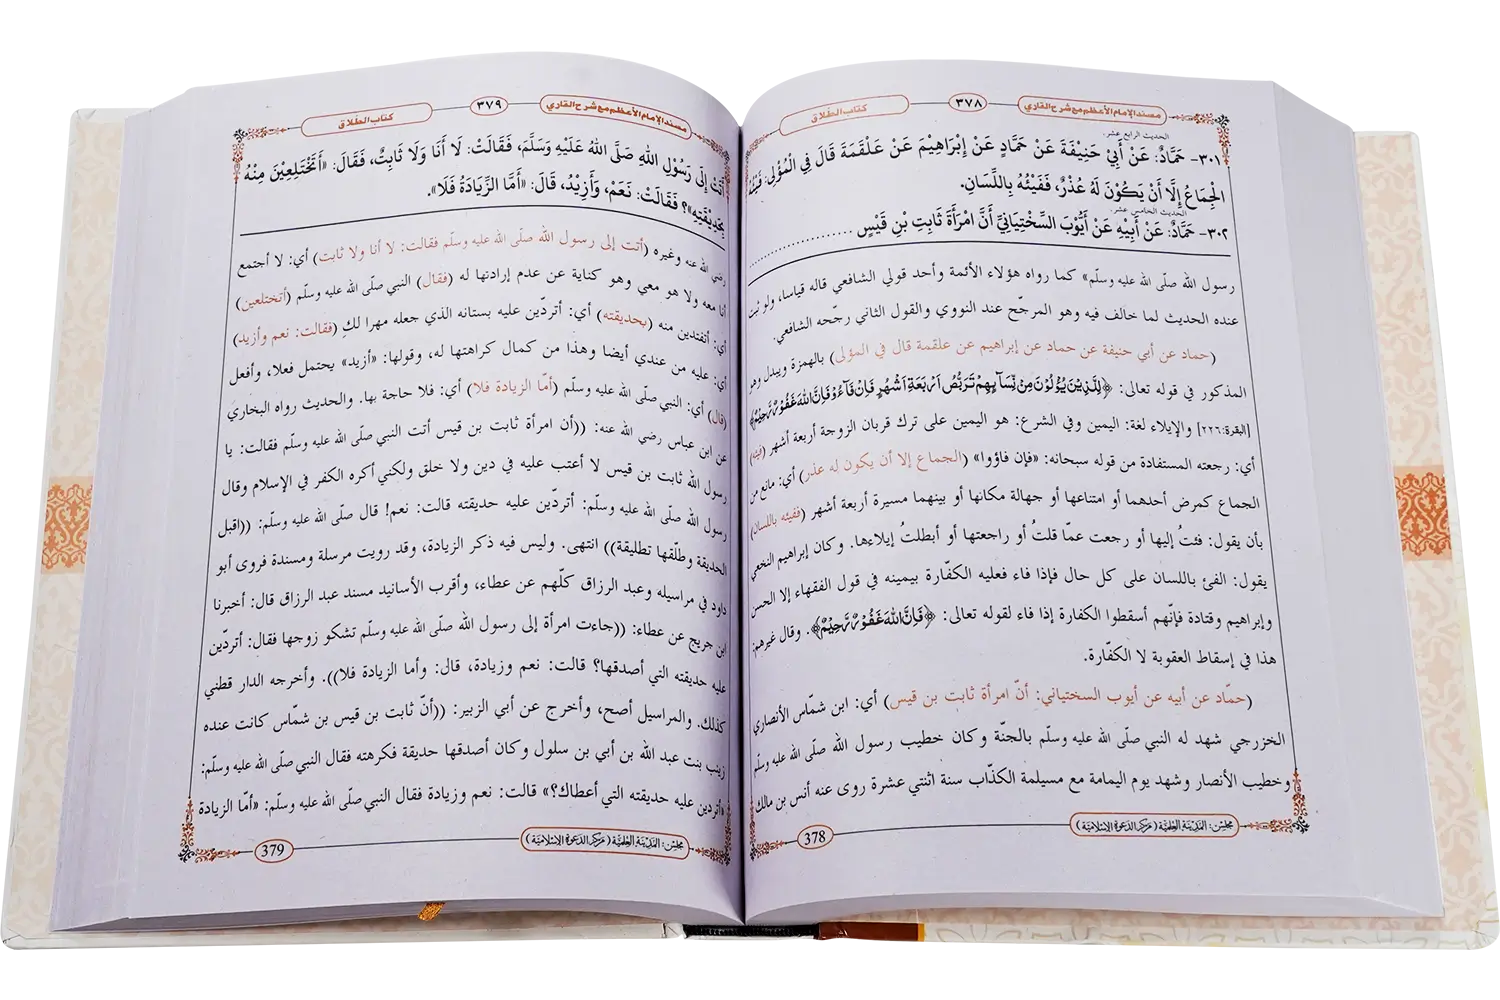 مسند الإمام الأعظم مع شرح القاري
٣٧٨
كتاب الطلاق
الحديث الرابع عشر.
٣٠١- حَمَّادٌ: عَنْ أَبِيْ حَنِيْفَةَ عَنْ حَمَّادٍ عَنْ إِبْرَاهِيْمَ عَنْ عَلْقَمَةَ قَالَ فِي الْمُؤْلِي: فَيْئُهُ
الْجِمَاعُ إِلَّا أَنْ يَكُوْنَ لَهُ عُذْرٌ، فَفَيْئُهُ بِاللِّسَانِ.
الحديث الخامس عشر.
٣٠٢- حَمَّادٌ: عَنْ أَبِيْهِ عَنْ أَيُّوْبَ السِّخْتِيَانِيِّ أَنَّ امْرَأَةَ ثَابِتِ بْنِ قَيْسٍ ..............
رسول الله صلّى الله عليه وسلّم» كما رواه هؤلاء الأئمة وأحد قولي الشافعي قاله قياسا، ولو ثبت
عنده الحديث لما خالف فيه وهو المرجّح عند النووي والقول الثاني رجّحه الشافعي.
(حماد عن أبي حنيفة عن حماد عن إبراهيم عن علقمة قال في المؤلى) بالهمزة ويبدل وهو
المذكور في قوله تعالى: ﴿لِلَّذِيْنَ يُؤْلُوْنَ مِنْ نِّسَآىِٕهِمْ تَرَبُّصُ اَرْبَعَةِ اَشْهُرٍ فَاِنْ فَآءُوْ فَاِنَّ اللّٰهَ غَفُوْرٌ رَّحِيْمٌ﴾
[البقرة: ٢٢٦] والإيلاء لغة: اليمين وفي الشرع: هو اليمين على ترك قربان الزوجة أربعة أشهر (فيئه)
أي: رجعته المستفادة من قوله سبحانه: «فإن فاؤوا» (الجماع إلا أن يكون له عذر) أي: مانع من
الجماع كمرض أحدهما أو امتناعها أو جهالة مكانها أو بينهما مسيرة أربعة أشهر (ففيئه باللسان)
بأن يقول: فئتُ إليها أو رجعت عمّا قلتُ أو راجعتها أو أبطلتُ إيلاءها. وكان إبراهيم النخعي
يقول: الفئ باللسان على كل حال فإذا فاء فعليه الكفّارة بيمينه في قول الفقهاء إلا الحسن
وإبراهيم وقتادة فإنّهم أسقطوا الكفارة إذا فاء لقوله تعالى: ﴿فَاِنَّ اللّٰهَ غَفُوْرٌ رَّحِيْمٌ﴾. وقال غيرهم:
هذا في إسقاط العقوبة لا الكفّارة.
(حمّاد عن أبيه عن أيوب السختياني: أنّ امرأة ثابت بن قيس) أي: ابن شمّاس الأنصاري
الخزرجي شهد له النبي صلّى الله عليه وسلّم بالجنّة وكان خطيب رسول الله صلّى الله عليه وسلّم
وخطيب الأنصار وشهد يوم اليمامة مع مسيلمة الكذّاب سنة اثنتي عشرة روى عنه أنس بن مالك
مجلس: المدينة العلمية (مركز الدعوة الإسلامية)
378
مسند الإمام الأعظم مع شرح القاري
٣٧٩
كتاب الطلاق
أَتَتْ إِلَى رَسُوْلِ اللهِ صَلَّى اللهُ عَلَيْهِ وَسَلَّمَ، فَقَالَتْ: لَا أَنَا وَلَا ثَابِتٌ، فَقَالَ: «أَتَخْتَلِعِيْنَ مِنْهُ
بِحَدِيْقَتِهِ»؟ فَقَالَتْ: نَعَمْ، وَأَزِيْدُ، قَالَ: «أَمَّا الزِّيَادَةُ فَلَا».
رضي الله عنه وغيره (أتت إلى رسول الله صلّى الله عليه وسلّم فقالت: لا أنا ولا ثابت) أي: لا أجتمع
أنا معه ولا هو معي وهو كناية عن عدم إرادتها له (فقال) النبي صلّى الله عليه وسلّم (أتختلعين)
أي: أتفتدين منه (بحديقته) أي: أتردّين عليه بستانه الذي جعله مهرا لكِ (فقالت: نعم وأزيد)
أي: عليه من عندي أيضا وهذا من كمال كراهتها له، وقولها: «أزيد» يحتمل فعلا، وأفعل
(قال) أي: النبي صلّى الله عليه وسلّم (أمّا الزيادة فلا) أي: فلا حاجة بها. والحديث رواه البخاري
عن ابن عباس رضي الله عنه: ((أن امرأة ثابت بن قيس أتت النبي صلّى الله عليه وسلّم فقالت: يا
رسول الله ثابت بن قيس لا أعتب عليه في دين ولا خلق ولكني أكره الكفر في الإسلام وقال
رسول الله صلّى الله عليه وسلّم: أتردّين عليه حديقته قالت: نعم! قال صلّى الله عليه وسلّم: ((اقبل
الحديقة وطلّقها تطليقة)) انتهى. وليس فيه ذكر الزيادة، وقد رويت مرسلة ومسندة فروى أبو
داود في مراسيله وعبد الرزاق كلّهم عن عطاء، وأقرب الأسانيد مسند عبد الرزاق قال: أخبرنا
ابن جريج عن عطاء: ((جاءت امرأة إلى رسول الله صلّى الله عليه وسلّم تشكو زوجها فقال: أتردّين
عليه حديقته التي أصدقها؟ قالت: نعم وزيادة، قال: وأما الزيادة فلا)). وأخرجه الدار قطني
كذلك. والمراسيل أصح، وأخرج عن أبي الزبير: ((أنّ ثابت بن قيس بن شمّاس كانت عنده
زينب بنت عبد الله بن أبي بن سلول وكان أصدقها حديقة فكرهته فقال النبي صلّى الله عليه وسلّم:
«أتردين عليه حديقته التي أعطاك؟» قالت: نعم وزيادة فقال النبي صلّى الله عليه وسلّم: «أمّا الزيادة
مجلس: المدينة العلمية (مركز الدعوة الإسلامية)
379